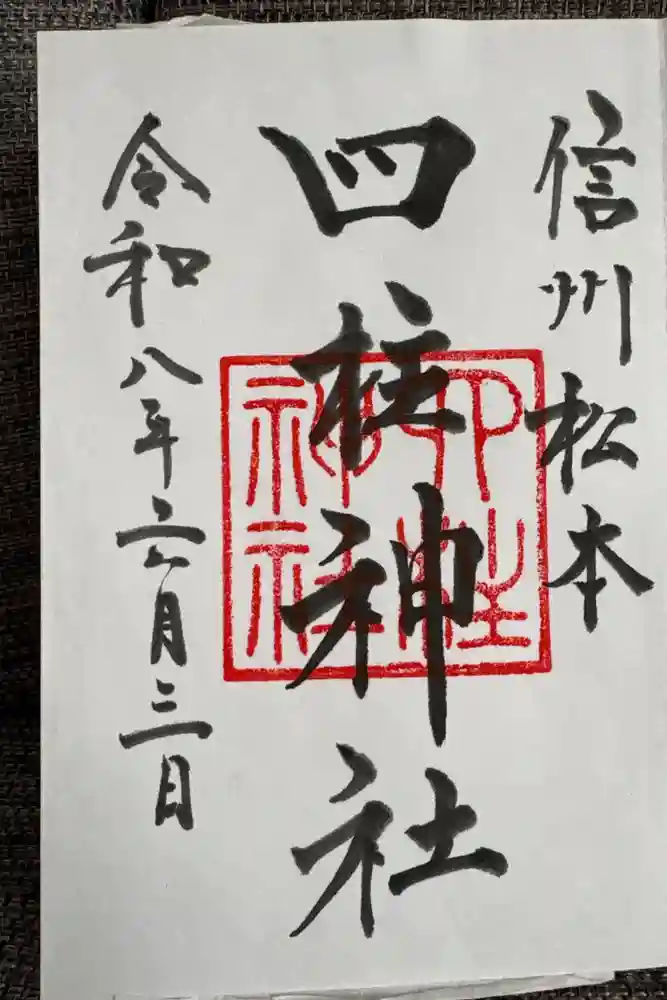 信州松本
四柱神社
四柱
神社
令和八年六月三日